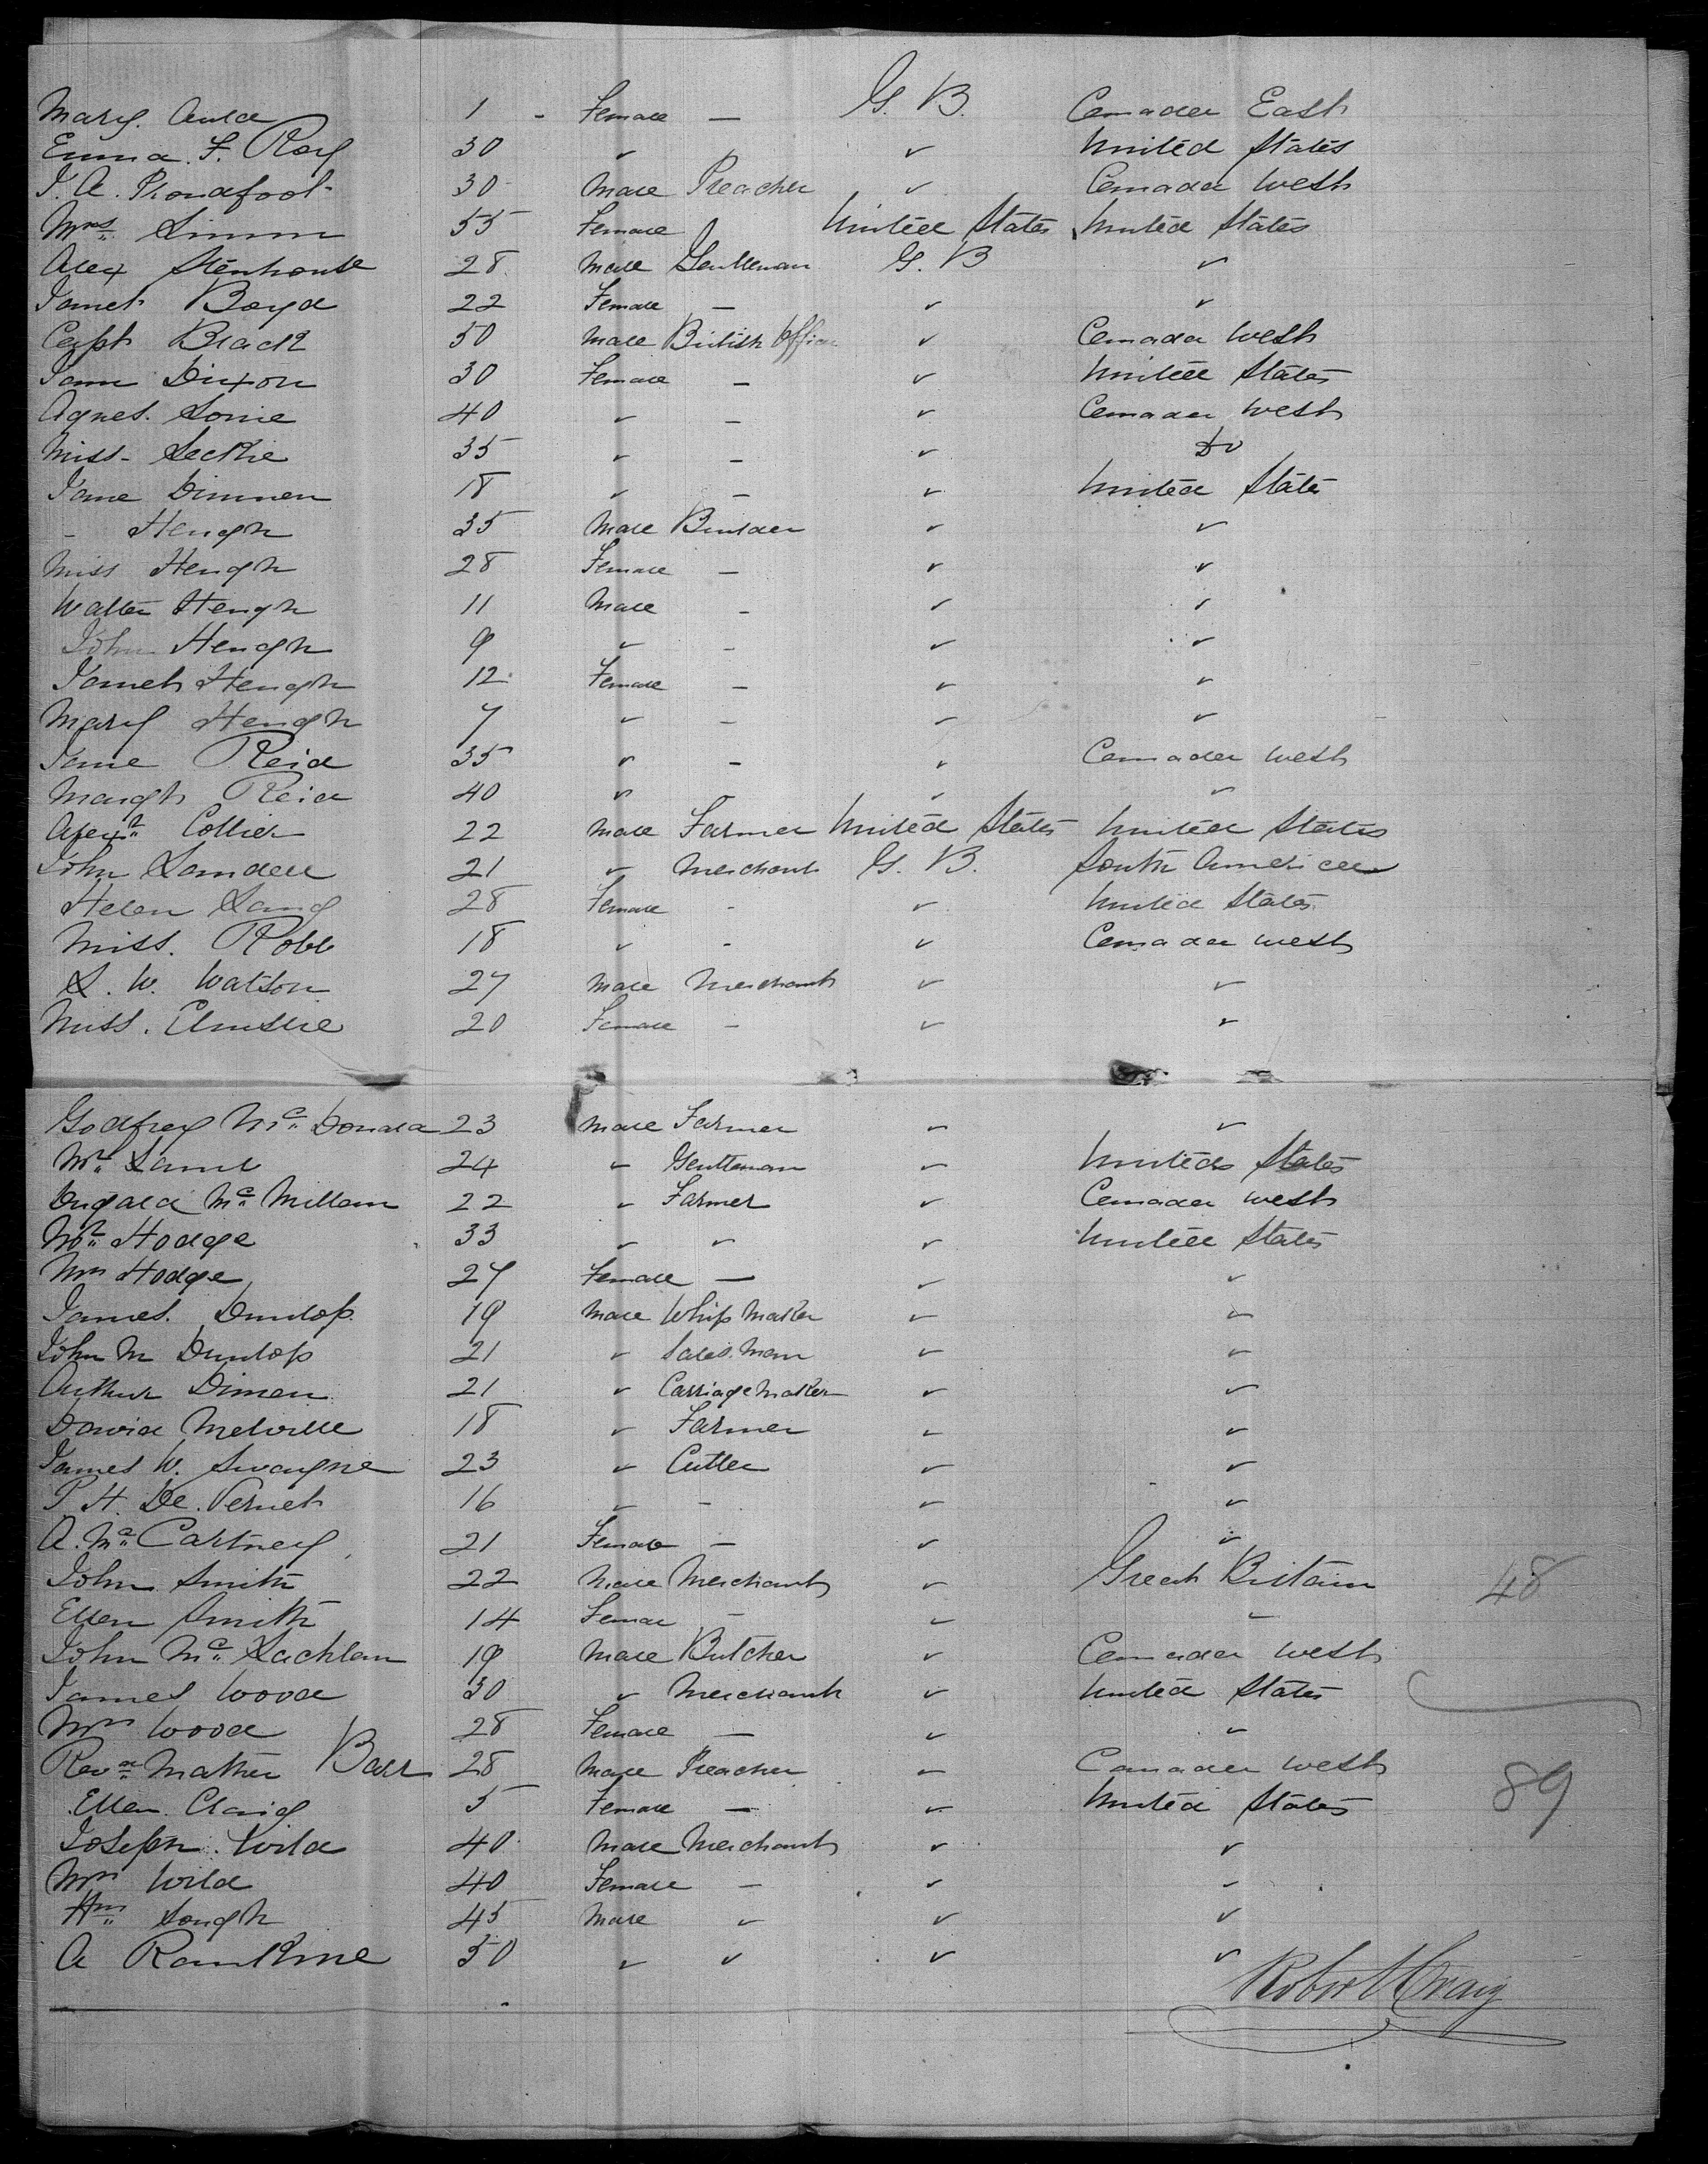 Mary. Auld 1 - Female — G. B. Canada East
Emma. F. Roy 30 ✓ ✓ United States
J. A. Proudfoot 30 Male Preacher ✓ Canada West
Mrs. Simm 55 Female United States United States
Alex Stenhouse 28 Male Gentleman G. B ✓
Janet Boyd 22 Female — ✓ ✓
Capt Black 50 Male British Officer ✓ Canada West
Jann Dixon 30 Female — ✓ United States
Agnes. Lorie 40 ✓ — ✓ Canada West
Miss- Leckie 35 ✓ — ✓ Do
Jane Dimmen 18 ✓ — ✓ United States
- Heugh 35 Male Builder ✓ ✓
Miss Heugh 28 Female — ✓ ✓
Walter Heugh 11 Male - ✓ ✓
John Heugh 9 ✓ - ✓ ✓
Janet Heugh 12 Female — ✓ ✓
Mary Heugh 7 ✓ — ✓ ✓
Jane Reid 35 ✓ - ✓ Canada West
Margt Reid 40 ✓ - ✓ ✓
Alexr. Collier 22 Male Farmer United States United States
John Landell 21 ✓ Merchant G. B. South America
Helen Lang 28 Female - ✓ United States
Miss. Robb 18 ✓ - ✓ Canada West
S. W. Watson 27 Male Merchant ✓ ✓
Miss. Elmslie 20 Female - ✓ ✓
Godfrey Mc Donald 23 Male Farmer ✓ ✓
Mr. 24 ✓ Gentleman ✓ United States
Dugald Mc Millan 22 ✓ Farmer ✓ Canada West
Mr. Hodge 33 ✓ ✓ ✓ United States
Mrs Hodge 27 Female — ✓ ✓
James. Dunlop. 19 Male Whip Maker ✓ ✓
John M Dunlop 21 ✓ Sales. Man ✓ ✓
Arthur Dimen 21 ✓ Carriage Maker ✓ ✓
David Melville 18 ✓ Farmer ✓ ✓
James W. Swayne 23 ✓ Cutler ✓ ✓
P H. De. Vernet 16 ✓ - ✓ ✓
A. Mc Cartney 21 Female — ✓ ✓
John Smith 22 Male Merchant ✓ Great Britain 48
Ellen Smith 14 Female — ✓ ✓
John Mc Lachlan 19 Male Butcher ✓ Canada West
James Wood 30 ✓ Merchant ✓ United States
Mrs Wood 28 Female — ✓ ✓
Revd. Mathew Barr 28 Male Preacher ✓ Canada West
Ellen. Craig 5 Female — ✓ United States 89
Joseph. Wild 40 Male Merchant ✓ ✓
Mrs Wild 40 Female — ✓ ✓
Wm. Lough 45 Male ✓ ✓ ✓
A Rankine 50 ✓ ✓ ✓ ✓
Robert Craig